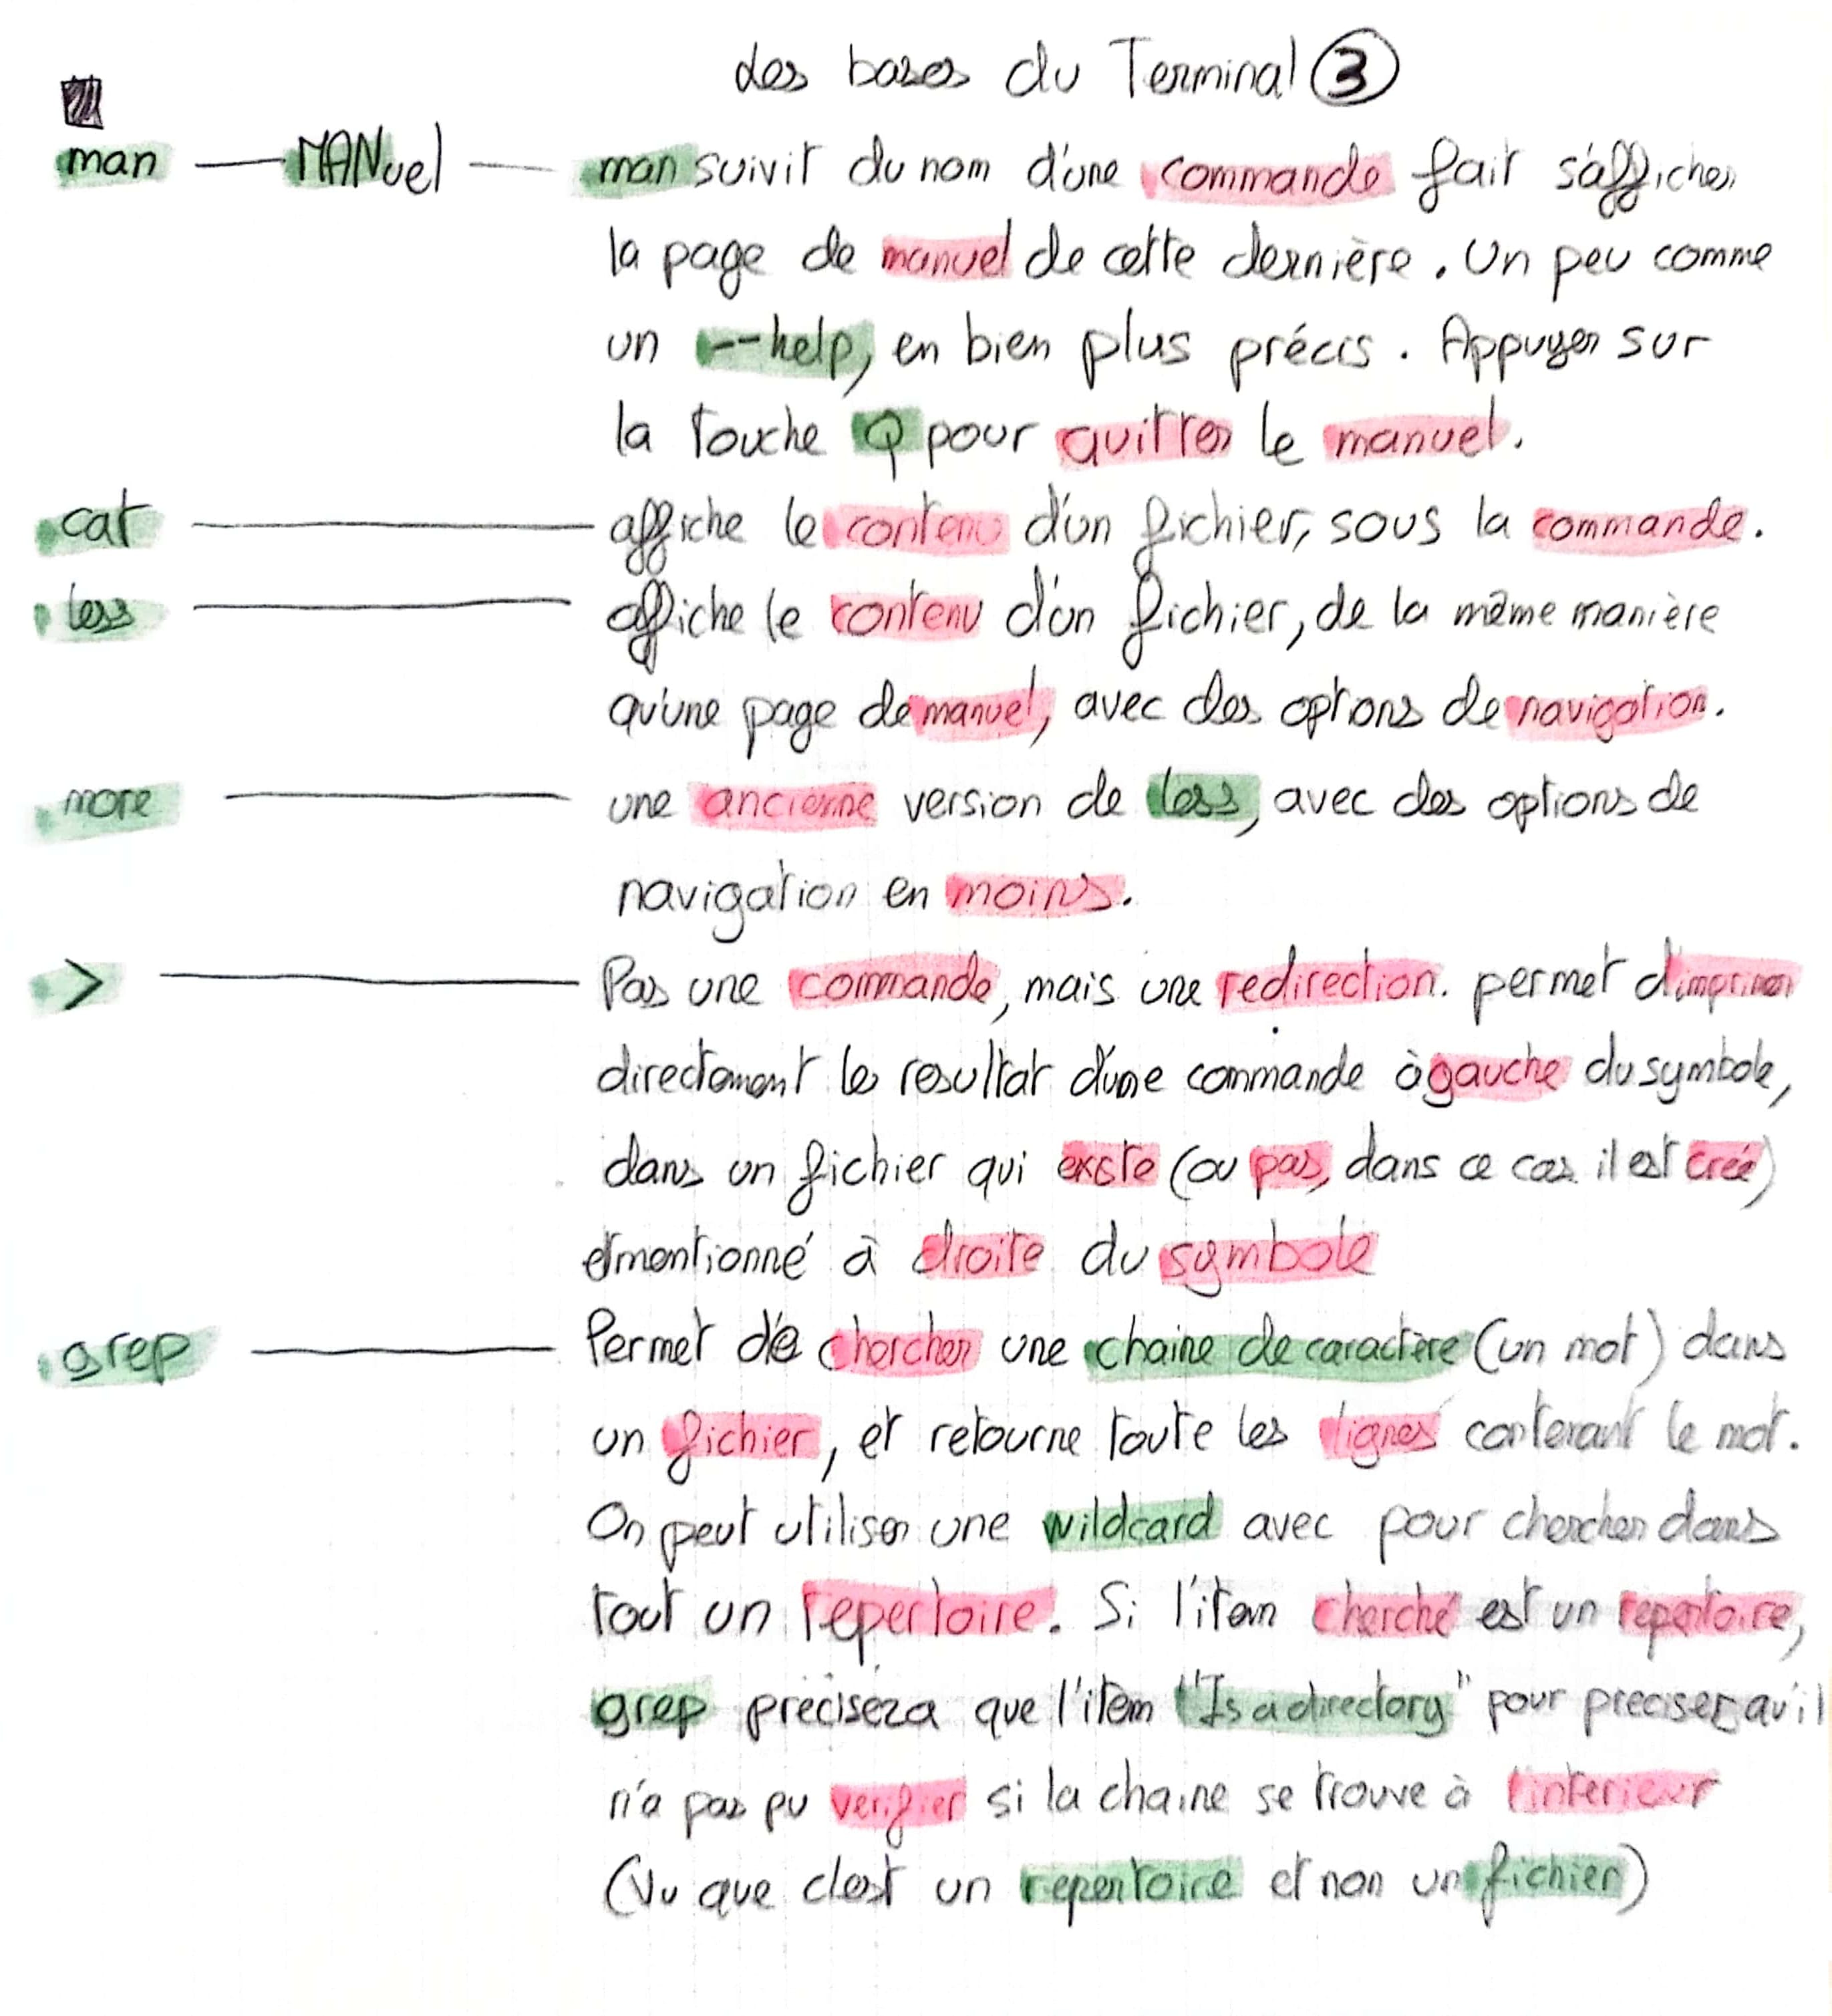 Les bases du Terminal 3
man — MANuel — man suivit du nom d'une commande fait s'afficher
la page de manuel de cette dernière. Un peu comme
un --help, en bien plus précis. Appuyer sur
la touche Q pour quitter le manuel.
cat — affiche le contenu d'un fichier, sous la commande.
less — affiche le contenu d'un fichier, de la même manière
qu'une page de manuel, avec des options de navigation.
more — une ancienne version de less, avec des options de
navigation en moins.
> — Pas une commande, mais une redirection. permet d'imprimer
directement le resultat d'une commande à gauche du symbole,
dans un fichier qui existe (ou pas, dans ce cas il est créé)
et mentionné à droite du symbole
grep — Permet de chercher une chaine de caractère (un mot) dans
un fichier, et retourne toute les lignes contenant le mot.
On peut utiliser une wildcard avec pour chercher dans
tout un repertoire. Si l'item cherché est un repertoire,
grep precisera que l'item "Is a directory" pour preciser qu'il
n'a pas pu verifier si la chaine se trouve à l'interieur
(Vu que c'est un repertoire et non un fichier)